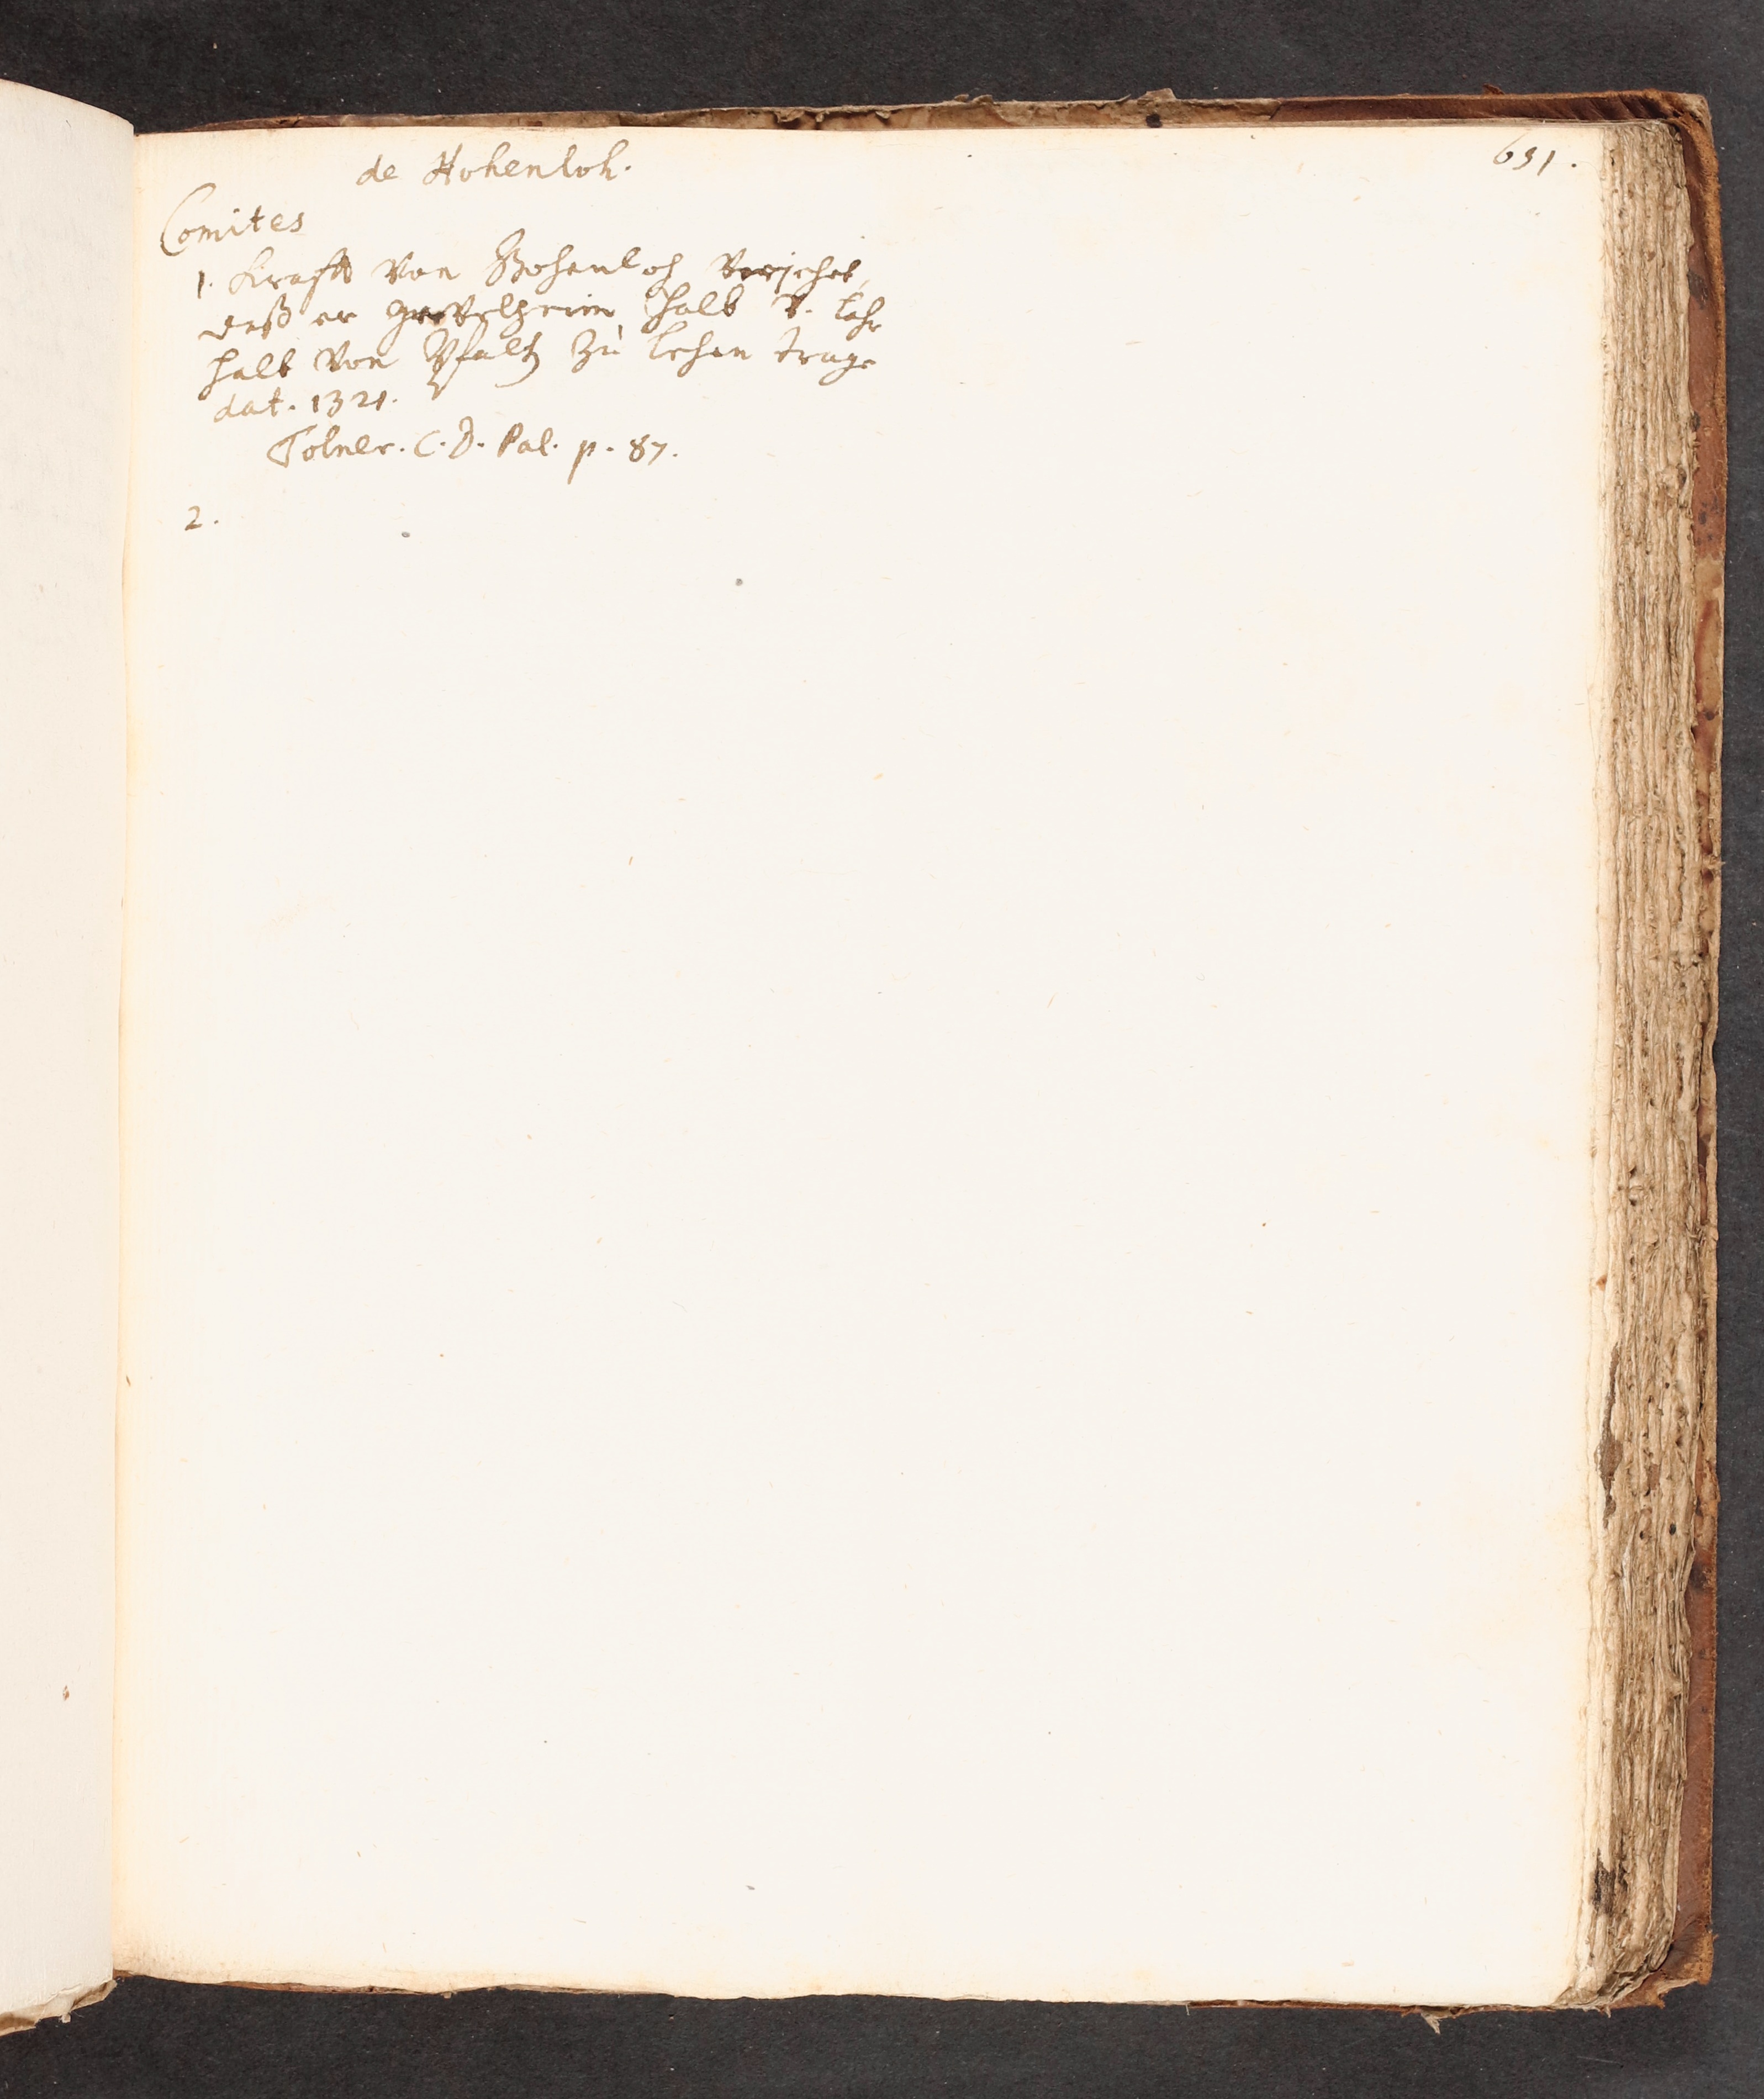 de Hohenloh.
651.
Comites
1. Krafft von Hohenloh verjehet,
daß er halb v. Lohr
halb von Pfaltz zu lehen trage
dat. 1321.
Tolner. C. D. Pal. p. 87.
2.